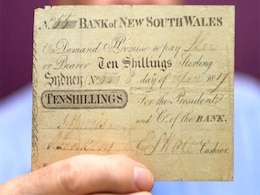 No. 55 BANK OF NEW SOUTH WALES
On Demand I Promise to pay
or Bearer Ten Shillings Sterling
Sydney No. 55 8 day of April 1817
TEN SHILLINGS For the President
and Co. of the BANK,
Cashier.